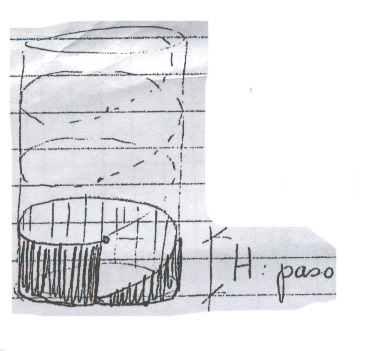 H: paso